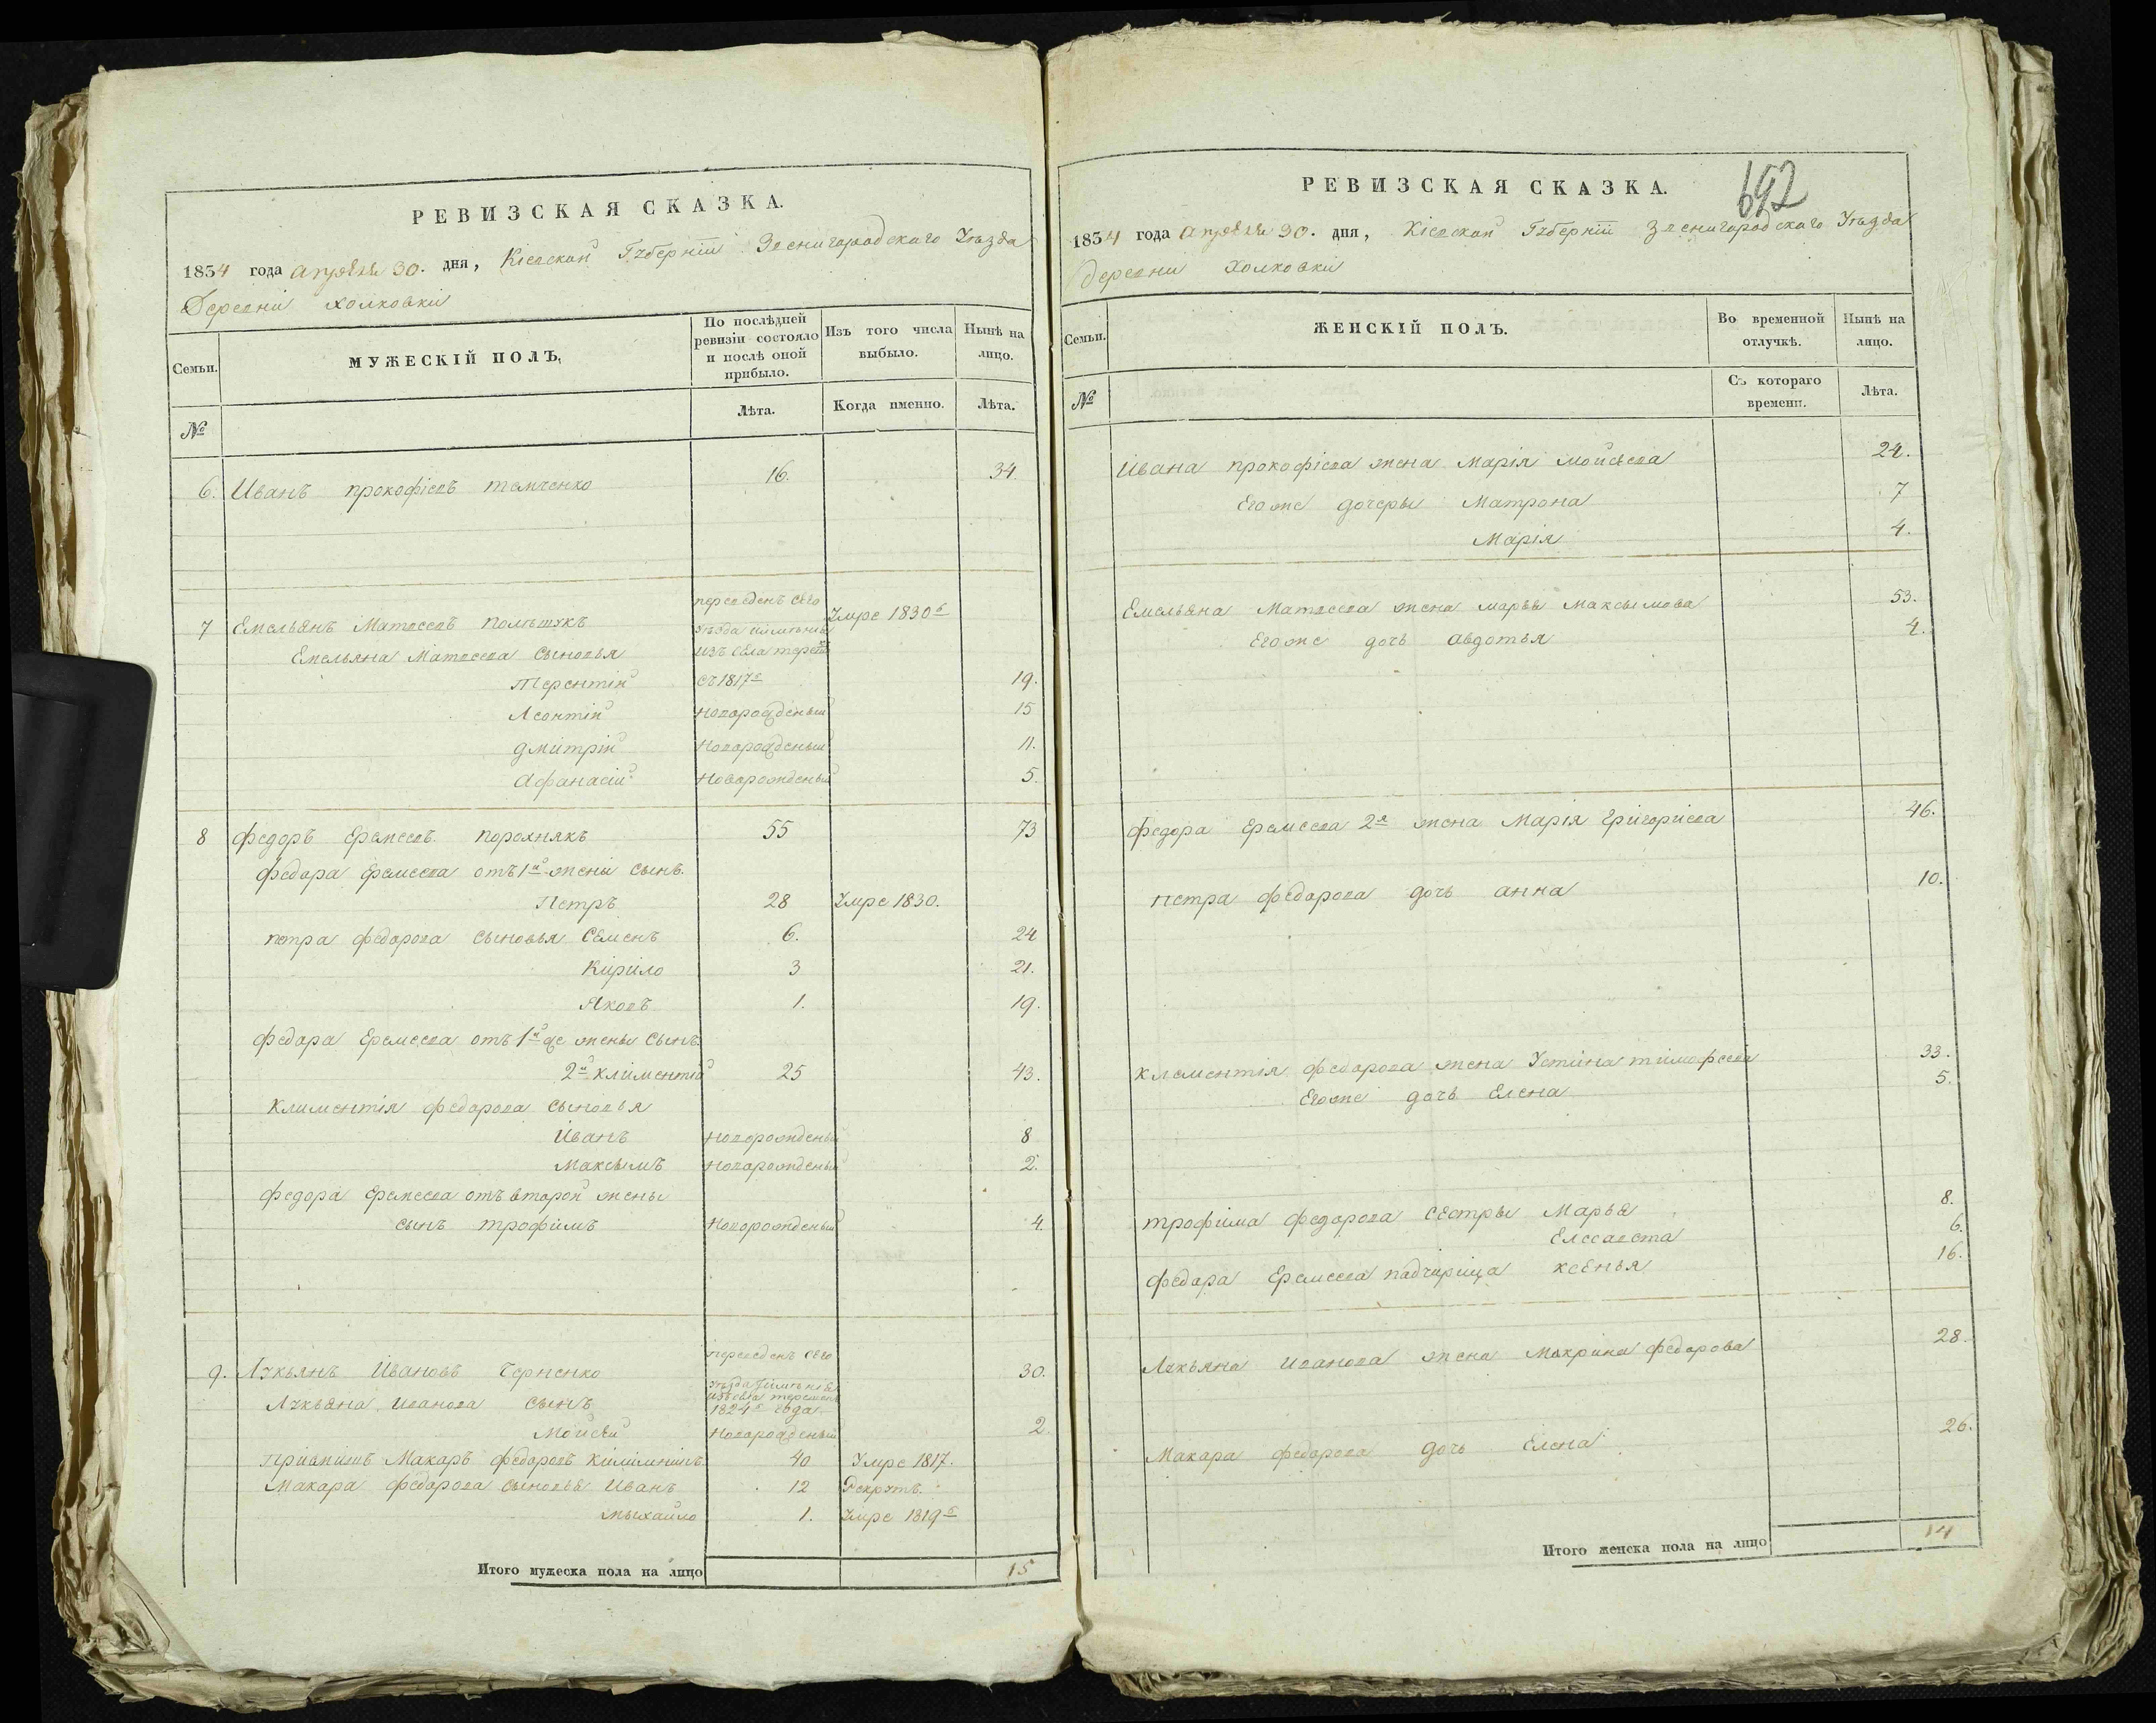 РЕВИЗСКАЯ СКАЗКА.
1834 года апреля 30. дня, Кіевской Губерніи Звенигородскаго Уезда
Деревни Холковки
Семьи.
МУЖЕСКІЙ ПОЛЪ,
По послѣдней ревизіи состояло и послѣ оной прибыло.
Изъ того числа выбыло.
Нынѣ на лицо.
№
Лѣта.
Когда именно.
Лѣта.
6. Иванъ прокофіевъ темченко 16. 34.
7 Емельянъ Матвеевъ переведенъ сего Умре 1830
Емельяна Матвеева сыновья изъ села
Терентій съ 1817 19.
Леонтій новорожденый 15
дмитрій новорожденый 11.
Афанасій новорожденый 5.
8 федоръ Еремеевъ порохнякъ 55 73
федора Еремеева отъ 1й жены сынъ
Петръ 28 Умре 1830.
петра федорова сыновья Семенъ 6. 24
Кирило 3 21.
Яковъ 1. 19.
федора Еремеева отъ 1й же жены сынъ
2й климентій 25 43.
Климентія федорова сыновья
Иванъ новорожденый 8
Максымъ новорожденый 2.
федора Еремеева отъ второй жены
сынъ трофимъ новорожденый 4.
9. Лукьянъ Ивановъ Черненко переведенъ сего 30.
Лукьяна Иванова сынъ 1824 года
Мойсей новорожденый 2
Макаръ федоровъ 40 Умре 1817.
Макара федорова сыновья Иванъ 12 Рекрутъ.
мыхайло 1. Умре 1819
Итого мужеска пола на лицо 15
692
РЕВИЗСКАЯ СКАЗКА.
1834 года апреля 30. дня, Кіевской Губерніи Звенигородскаго Уезда
деревни Холковки
Семьи.
ЖЕНСКІЙ ПОЛЪ.
Во временной отлучкѣ.
Нынѣ на лицо.
№
Съ котораго времени.
Лѣта.
Ивана прокофіева жена Марія мойсеева 24.
Егоже дочеры Матрона 7
Марія 4.
Емельяна Матвеева жена марья Максымова 53.
Егоже дочь авдотья 4.
федора Еремеева 2я жена Марія Григориева 46.
петра федорова дочь анна 10.
Клементія федорова жена Устина тимофеева 33.
Егоже дочь Елена 5.
трофима федорова сестры Марья 8.
Елисавета 6.
федора Еремеева падчирица ксенья 16.
Лукьяна Иванова жена Макрина федорова 28.
Макара федорова дочь Елена 26.
Итого женска пола на лицо 14